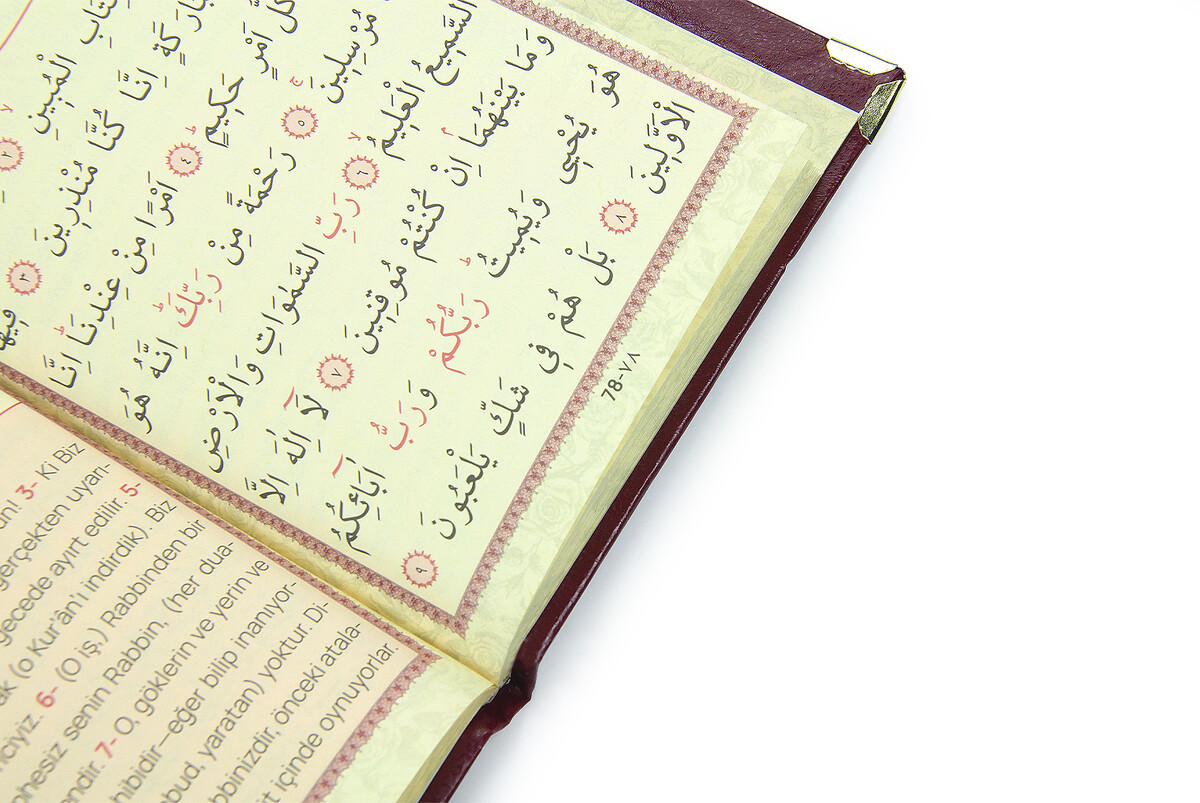 الْمُبِينِۙ ٢
اِنَّا كُنَّا مُنْذِرِينَ ٣ فِيهَا
كُلُّ اَمْرٍ حَكِيمٍۙ ٤ اَمْرًا مِنْ عِنْدِنَاۜ اِنَّا
مُرْسِلِينَۚ ٥ رَحْمَةً مِنْ رَبِّكَۜ اِنَّهُ هُوَ
السَّمِيعُ الْعَلِيمُۙ ٦ رَبِّ السَّمٰوَاتِ وَالْاَرْضِ
وَمَا بَيْنَهُمَاۢ اِنْ كُنْتُمْ مُوقِنِينَ ٧ لَٓا اِلٰهَ اِلَّا
هُوَ يُحْيِي وَيُمِيتُۜ رَبُّكُمْ وَرَبُّ اٰبَٓائِكُمُ
الْاَوَّلِينَ ٨ بَلْ هُمْ فِي شَكٍّ يَلْعَبُونَ ٩
78-٧٨
3- Ki Biz
gerçekten uyarı-
gecede ayırt edilir. 5-
(o Kur'ân'ı indirdik). Biz
6- (O iş.) Rabbinden bir
senin Rabbin, (her dua-
7- O, göklerin ve yerin ve
–eğer bilip inanıyor-
yaratan) yoktur. Di-
önceki atala-
içinde oynuyorlar.